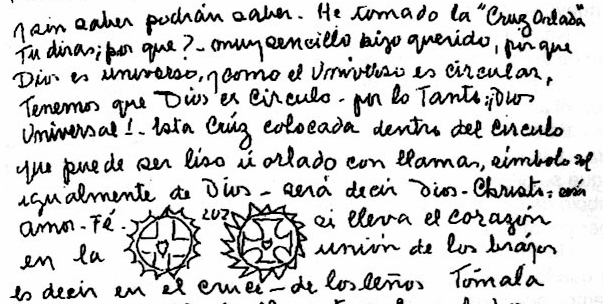 y sin saber podrán saber. He tomado la "Cruz Orlada"
Tu diras; por que? - muy sencillo hijo querido, por que
Dios es universo, y como el Universo es circular,
Tenemos que Dios es circulo - por lo Tanto: ¡Dios
Universal! - Esta Crúz colocada dentro del circulo
que puede ser liso ú orlado con llamas, símbolo
igualmente de Dios - será decir Dios - Christo =
amor - Fé. - luz si lleva el corazón
en la unión de los brazos
es decir en el cruce - de los leños Tómala